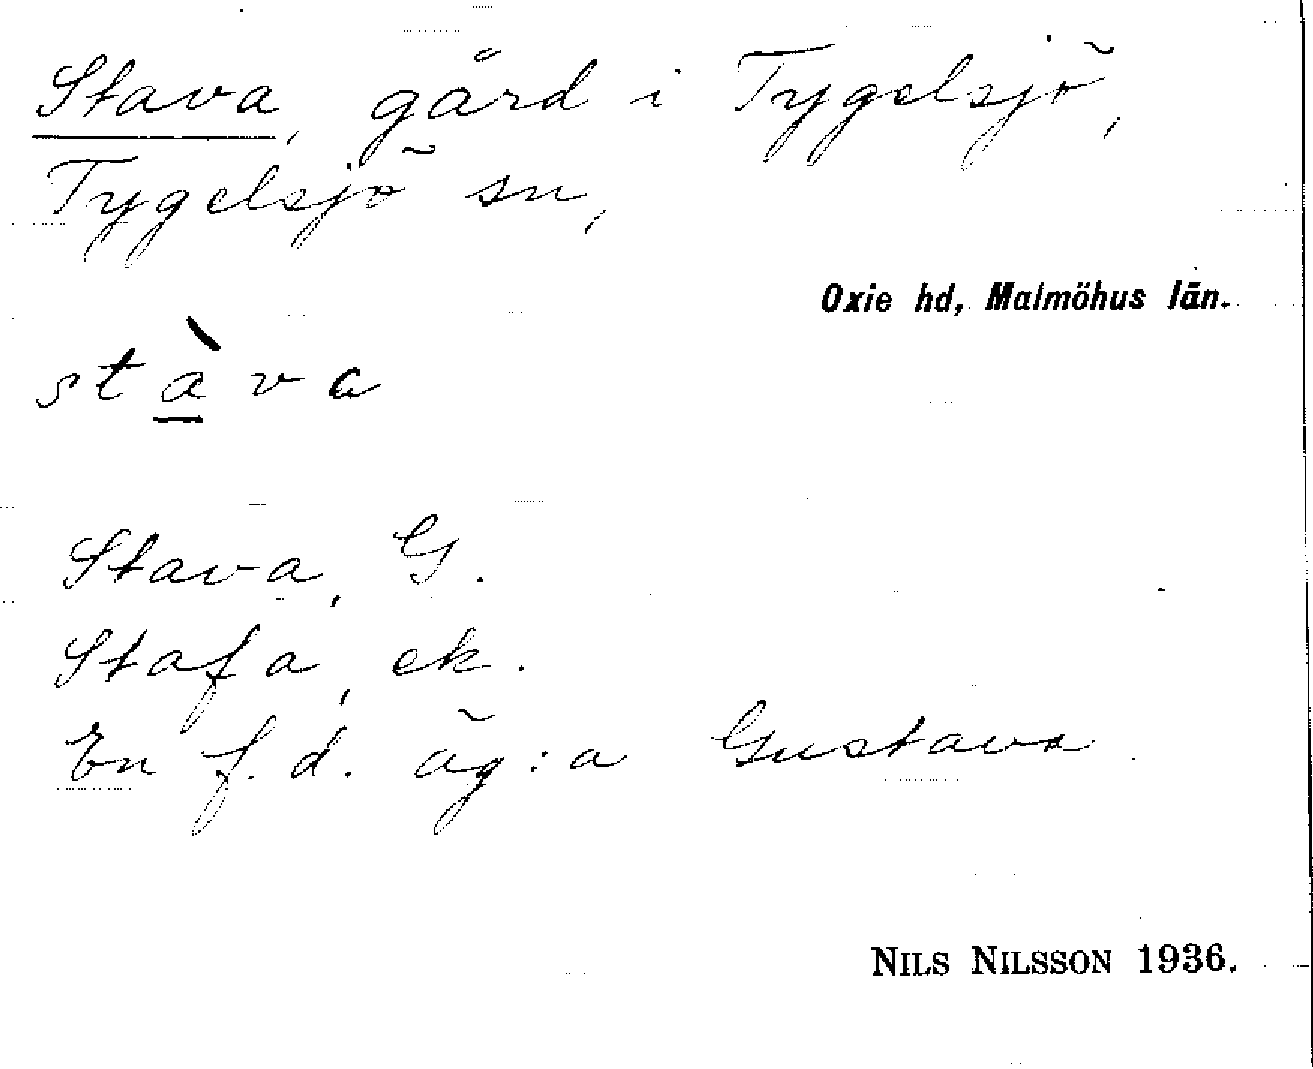 Stava, gård i Tygelsjö,
Tygelsjö sn,
Oxie hd, Malmöhus län.
stàva
Stava, G.
Stafa, ek.
En f.d. äg:a Gustava.
NILS NILSSON 1936.